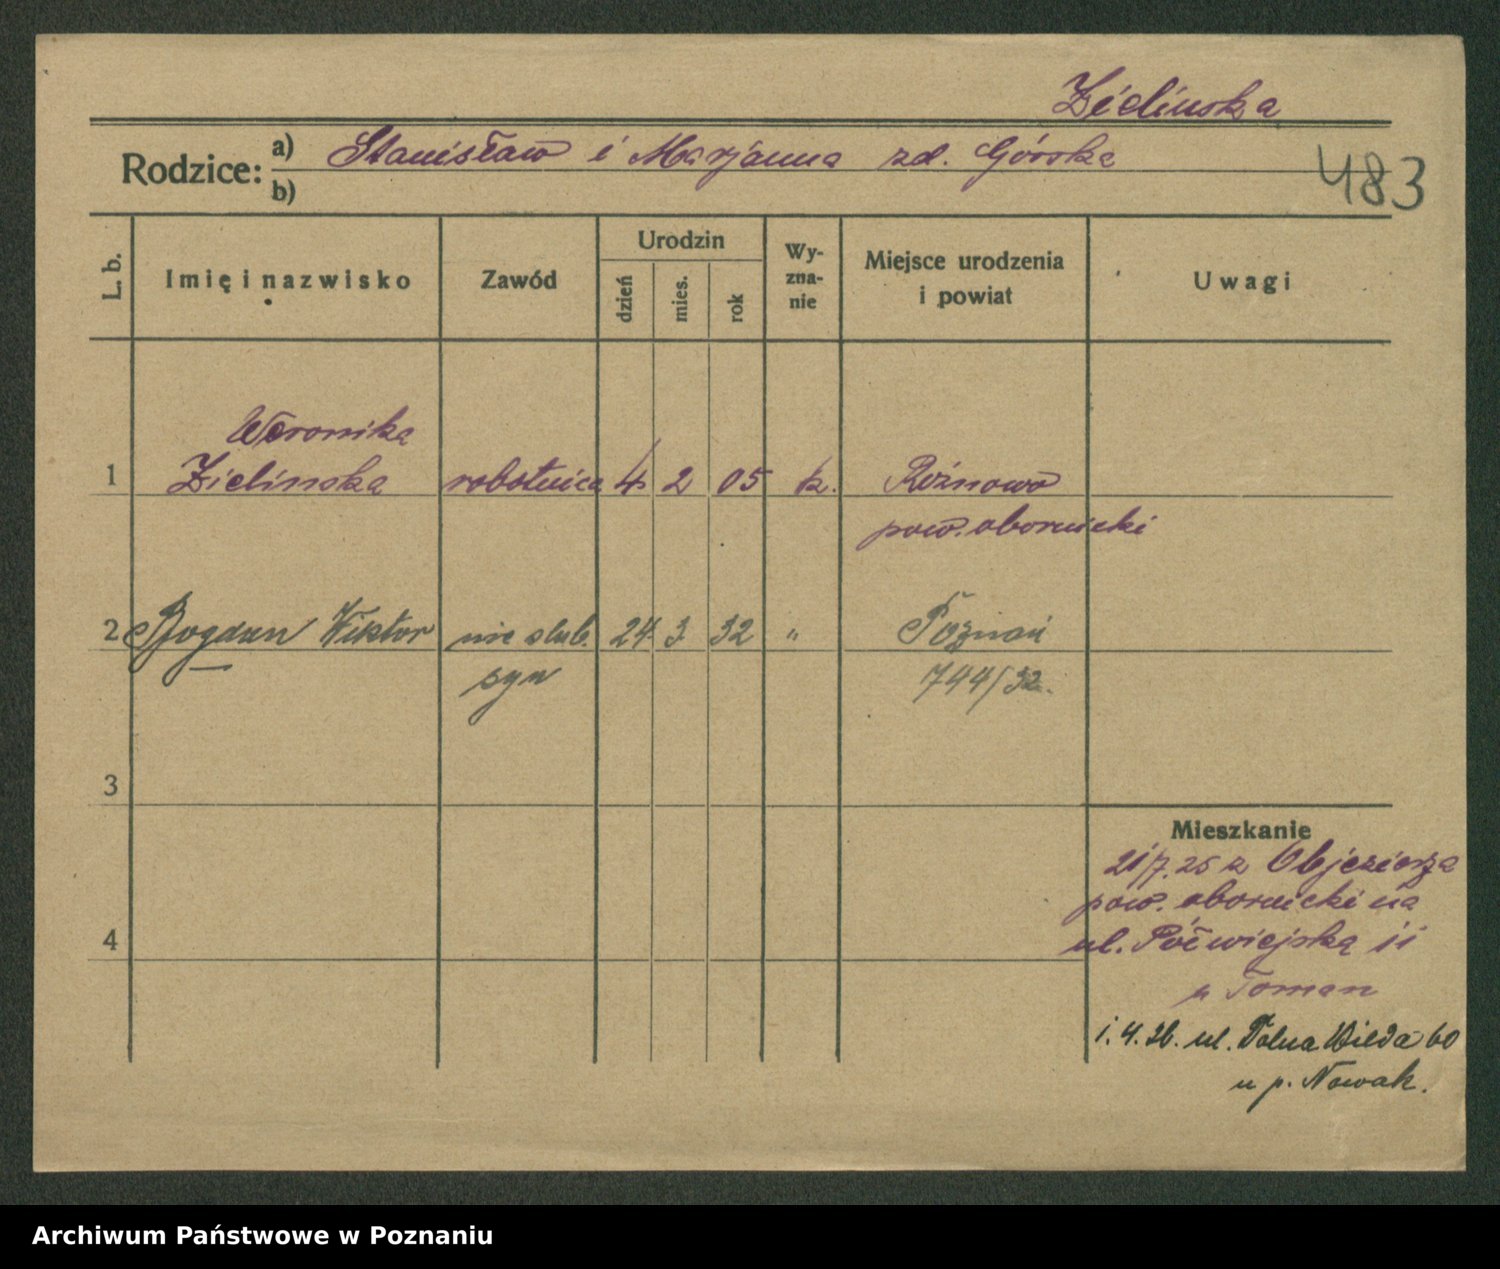 Zielinska
Rodzice: a) Stanisław i Marjanna zd. Górska
b)
483
L. b.
Imię i nazwisko
Zawód
Urodzin
dzień
mies.
rok
Wy-
zna-
nie
Miejsce urodzenia
i powiat
Uwagi
Weronika
1 Zielinska robotnica 4 2 05 k. Rożnowo
pow. obornicki
2 Bogdan Wiktor nie ślub. 24. 3 32 " Poznań
syn 744/32.
3
Mieszkanie
21/7. 25 z Objezierza
pow. obornicki na
4
ul. Półwiejską 11
u Toman
1. 4. 26. ul. Dolna Wilda 60
u p. Nowak.
Archiwum Państwowe w Poznaniu